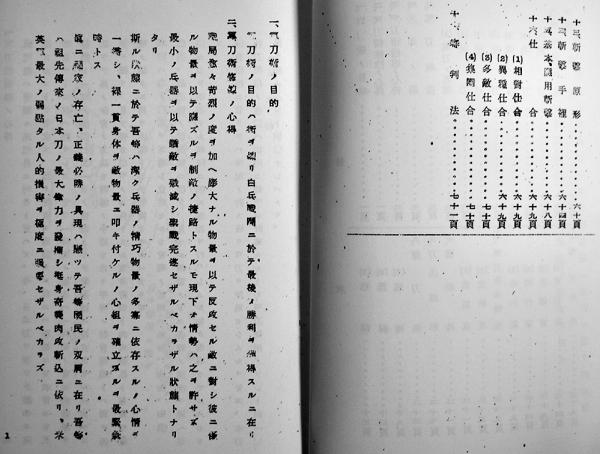 十三、斬撃原形............六十頁
十四、斬撃手裡............六十四頁
十五、基本、應用斬撃............六十八頁
十六、仕合............六十九頁
(1) 相對仕合............六十九頁
(2) 異種仕合............六十九頁
(3) 多敵仕合............七十頁
(4) 集團仕合............七十頁
十七、審判法............七十一頁
一、軍刀術ノ目的
軍刀術ノ目的ハ術ヲ練リ白兵戰鬪ニ於テ最後ノ勝利ヲ獲得スルニ在リ
二、軍刀術修練ノ心得
戰局愈々苛烈ノ度ヲ加ヘ厖大ナル物量ヲ以テ反攻セル敵ニ對シ彼ニ優
ル物量ヲ以テ應ズルヲ制敵ノ捷路トスルモ現下ノ情勢ハ之ヲ許サズ
最小ノ兵器ヲ以テ驕敵ヲ撃滅シ聖戰完遂セザルベカラザル狀態トナリ
タリ
斯ル狀態ニ於テ吾等ハ深ク兵器ノ精巧物量ノ多寡ニ依存スルノ心情ヲ
一擲シ、裸一貫身体ヲ敵物量ニ叩キ付ケルノ心組ヲ確立スルヲ最緊急
時トス
ニ ノ存亡、正義必勝ノ具現ハ懸ツテ吾等國民ノ双肩ニ在リ吾等
ハ祖先傳來ノ日本刀ノ最大偉力ヲ發揮シ挺身奇襲肉攻斬込ニ依リ、米
英 最大ノ弱點タル人的損耗ヲ極度ニ强要セザルベカラズ
1